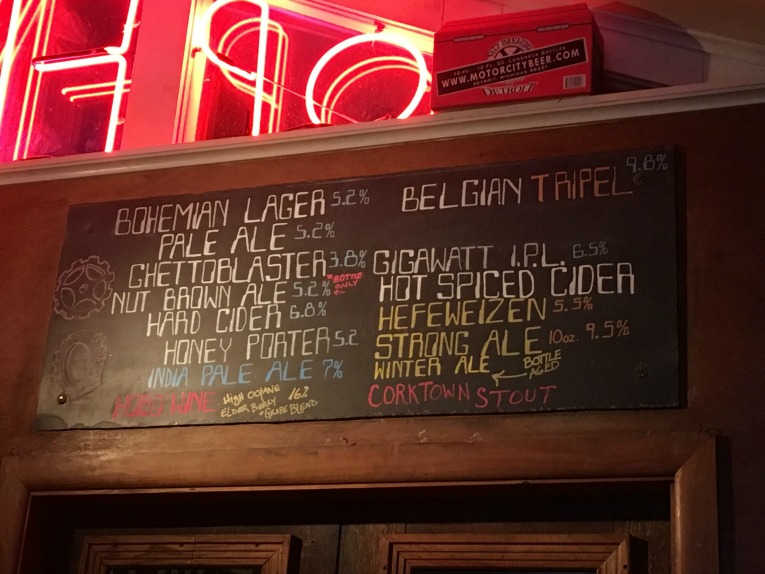 WWW.MOTORCITYBEER.COM
DETROIT, MICHIGAN 48201
DETROIT
BOHEMIAN LAGER 5.2%
PALE ALE 5.2%
GHETTOBLASTER 3.8%
*BOTTLE ONLY
NUT BROWN ALE 5.2%
HARD CIDER 6.8%
HONEY PORTER 5.2
INDIA PALE ALE 7%
WINE HIGH OCTANE 16%
ELDER BERRY + GRAPE BLEND
BELGIAN TRIPEL 9.8%
GIGAWATT I.P.L. 6.5%
HOT SPICED CIDER
HEFEWEIZEN 5.5%
STRONG ALE 10oz. 9.5%
WINTER ALE BOTTLE AGED
CORKTOWN STOUT